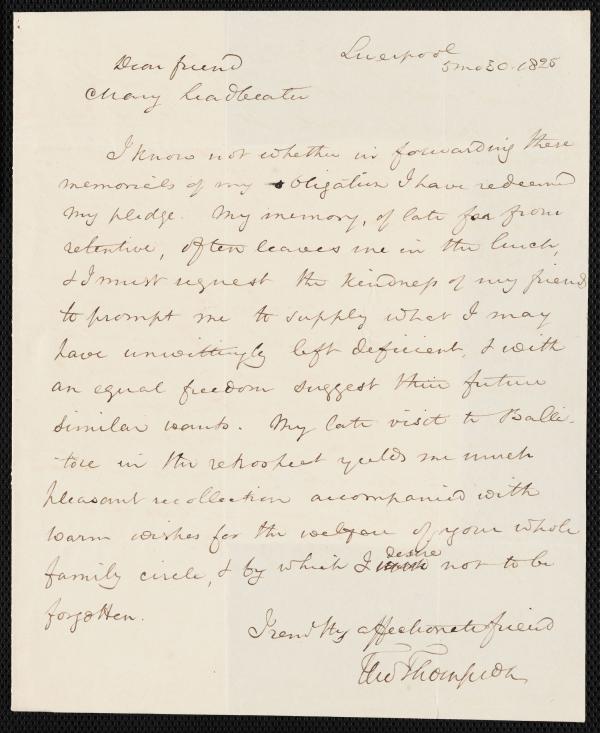 Liverpool
5mo 30. 1825
Dear friend
Mary Leadbeater
I know not whether in forwarding these
memorials of my obligation I have redeemed
my pledge. My memory, of late far from
retentive, often leaves me in the lurch,
& I must request the kindness of my friend
to prompt me to supply what I may
have unwittingly left deficient, & with
an equal freedom suggest their future
similar wants. My late visit to Balli-
tore in the retrospect yields me much
pleasant recollection accompanied with
warm wishes for the welfare of your whole
family circle, & by which I desire not to be
forgotten.
I rem thy affectionate friend
Thos Thompson